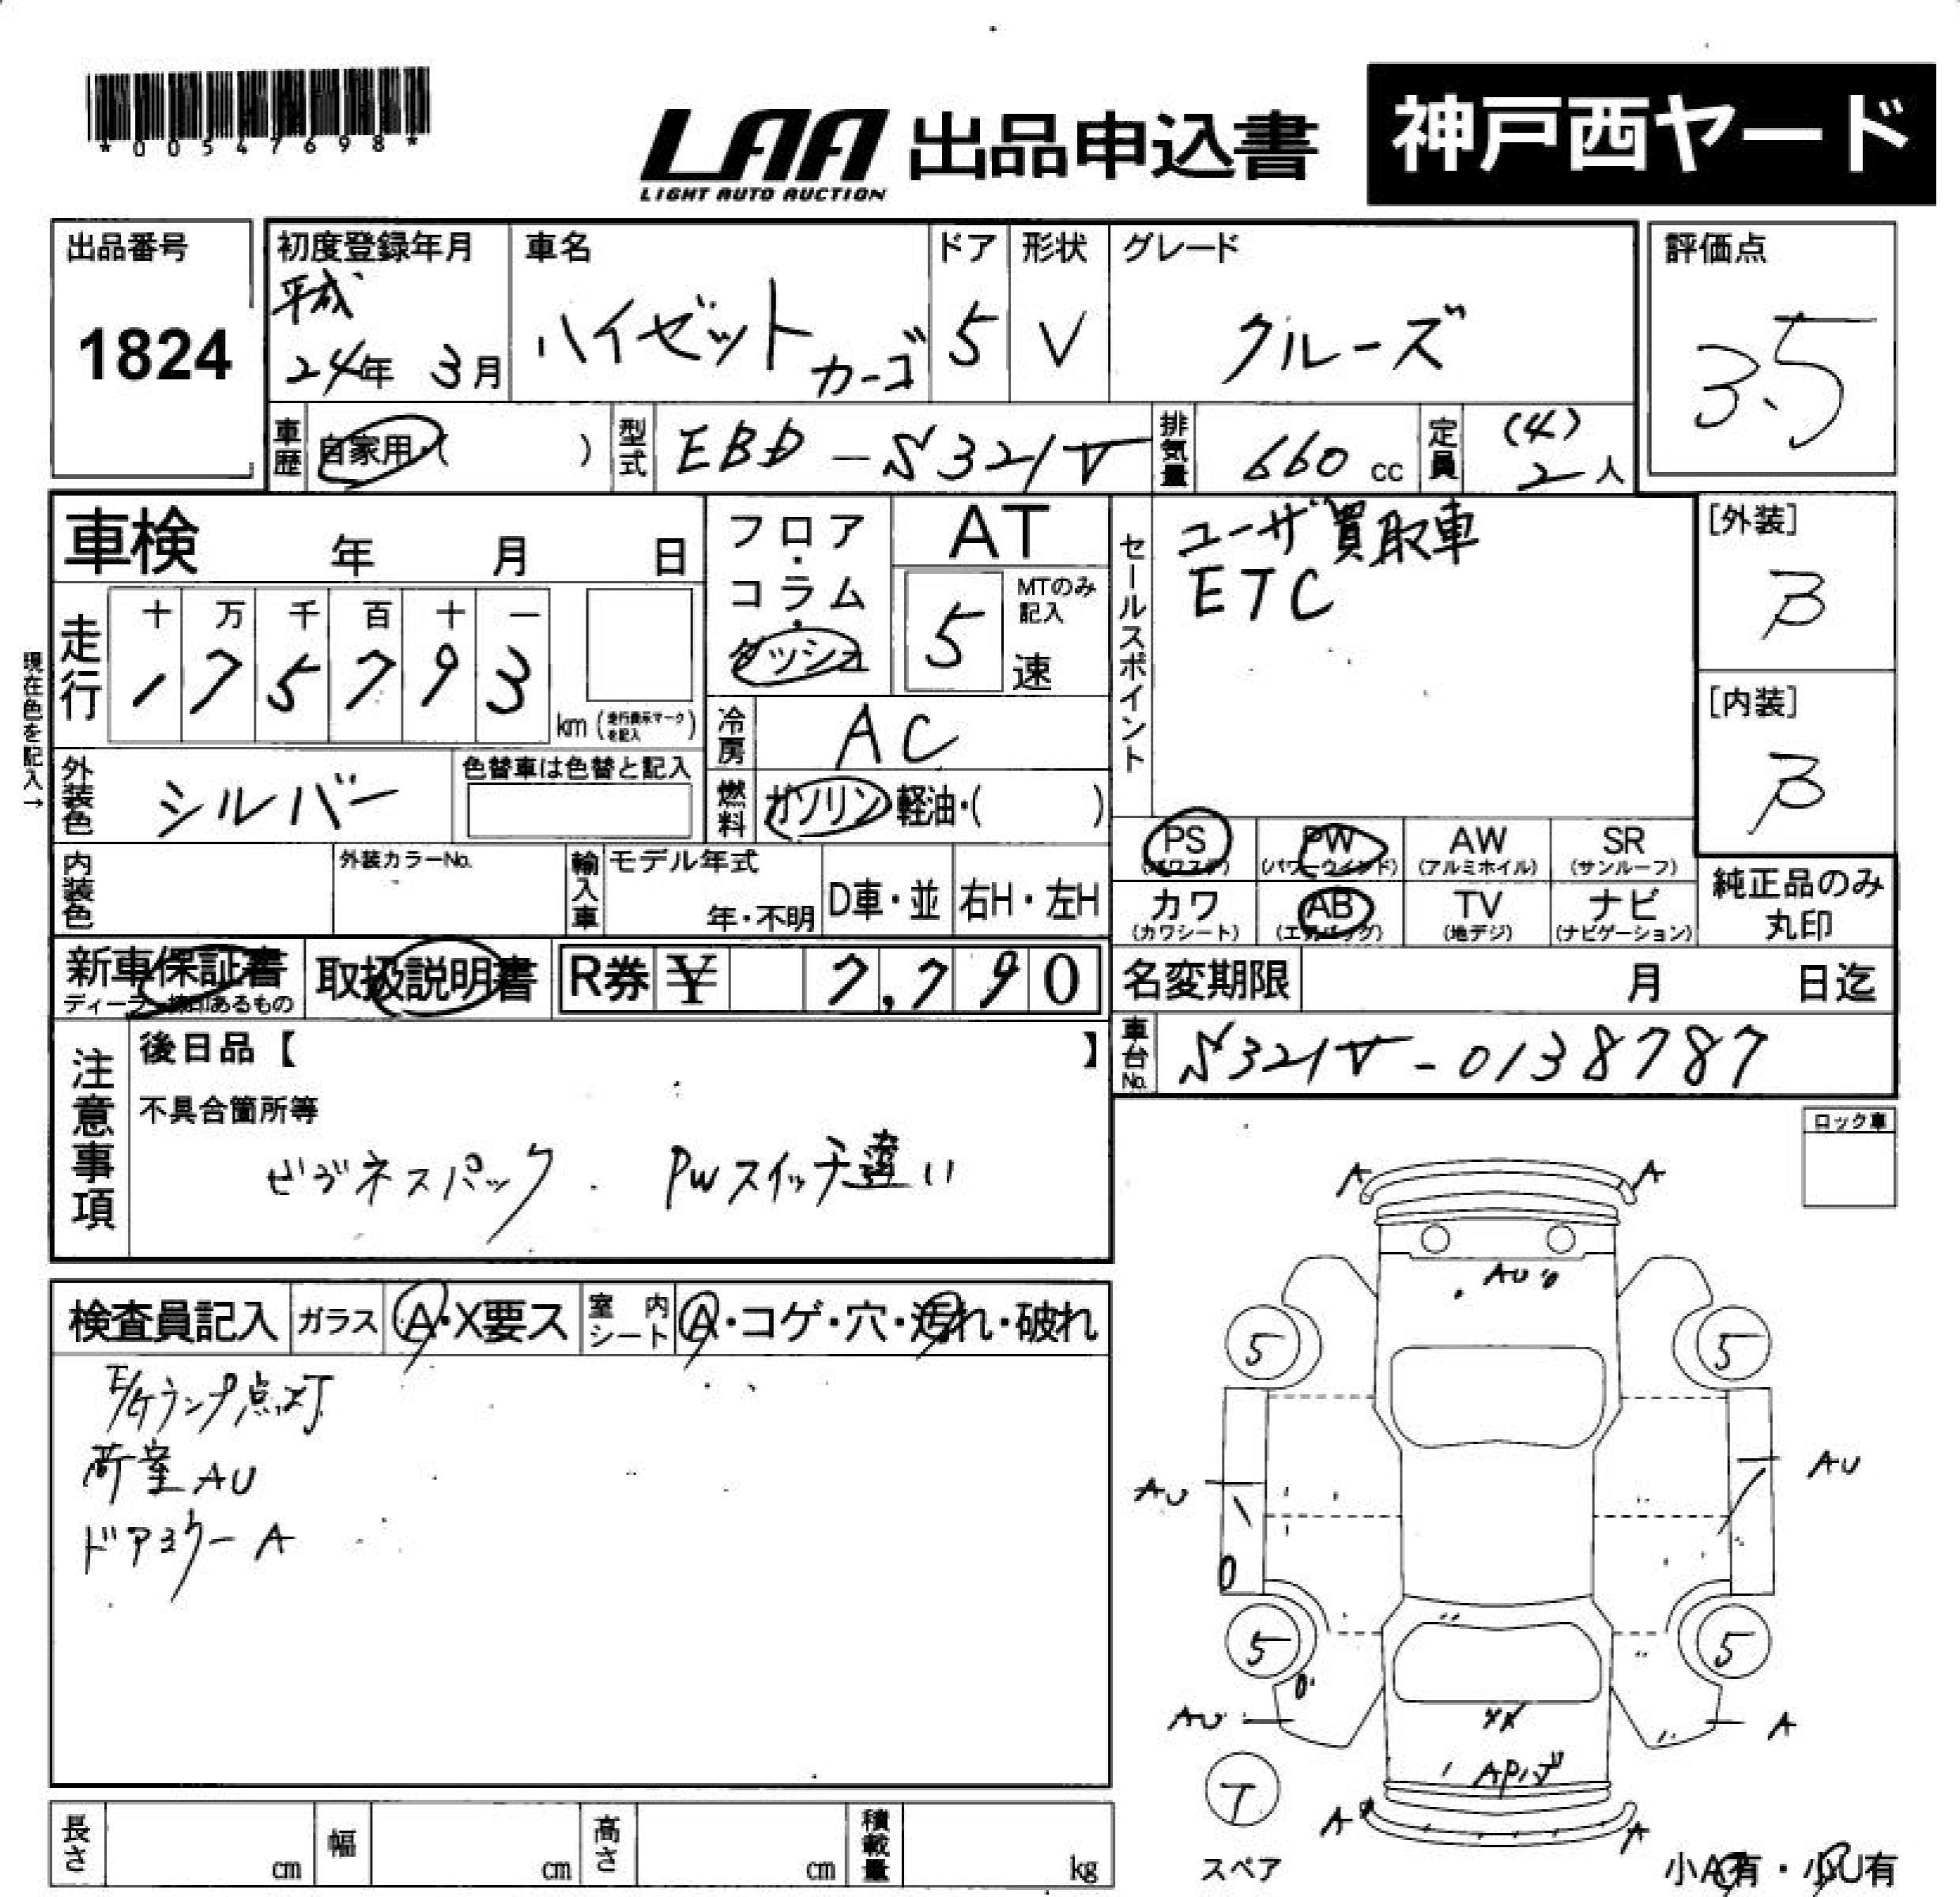 *00547698*
LAA 出品申込書 神戸西ヤード
LIGHT AUTO AUCTION
出品番号
1824
初度登録年月
平成
24年 3月
車名
ハイゼット
カーゴ
ドア
5
形状
V
グレード
クルーズ
評価点
3.5
車歴
自家用・( )
型式
EBD-S321V
排気量
660 cc
定員
(4)
2人
車検 年 月 日
走行
十 万 千 百 十 一
1 7 5 7 9 3
km (走行表示マークを記入)
現在色を記入→
外装色
シルバー
色替車は色替と記入
内装色
外装カラーNo.
輸入車
モデル年式
年・不明
D車・並
右H・左H
フロア
・
コラム
・
ダッシュ
AT
5
MTのみ
記入
速
冷房
AC
燃料
ガソリン 軽油・( )
セールスポイント
ユーザ買取車
ETC
[外装]
B
[内装]
B
PS
(パワステ)
PW
(パワーウインド)
AW
(アルミホイル)
SR
(サンルーフ)
カワ
(カワシート)
AB
(エアバッグ)
TV
(地デジ)
ナビ
(ナビゲーション)
純正品のみ
丸印
新車保証書
取扱説明書
R券 ¥ 7,790
名変期限 月 日迄
車台No.
S321V-0138787
注意事項
後日品【 】
不具合箇所等
ビジネスパック. PWスイッチ違い
ロック車
検査員記入
ガラス
A・X要ス
室内
シート
A・コゲ・穴・汚れ・破れ
E/Gランプ点灯
荷室 AU
ドアミラー A
A
A
AU
5
5
AU
AU
5
5
AU
A
T
スペア
A
A
小A有・小U有
長さ cm
幅 cm
高さ cm
積載量 kg